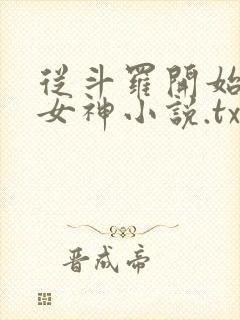 從斗羅開始
女神小說.tx
晋成帝